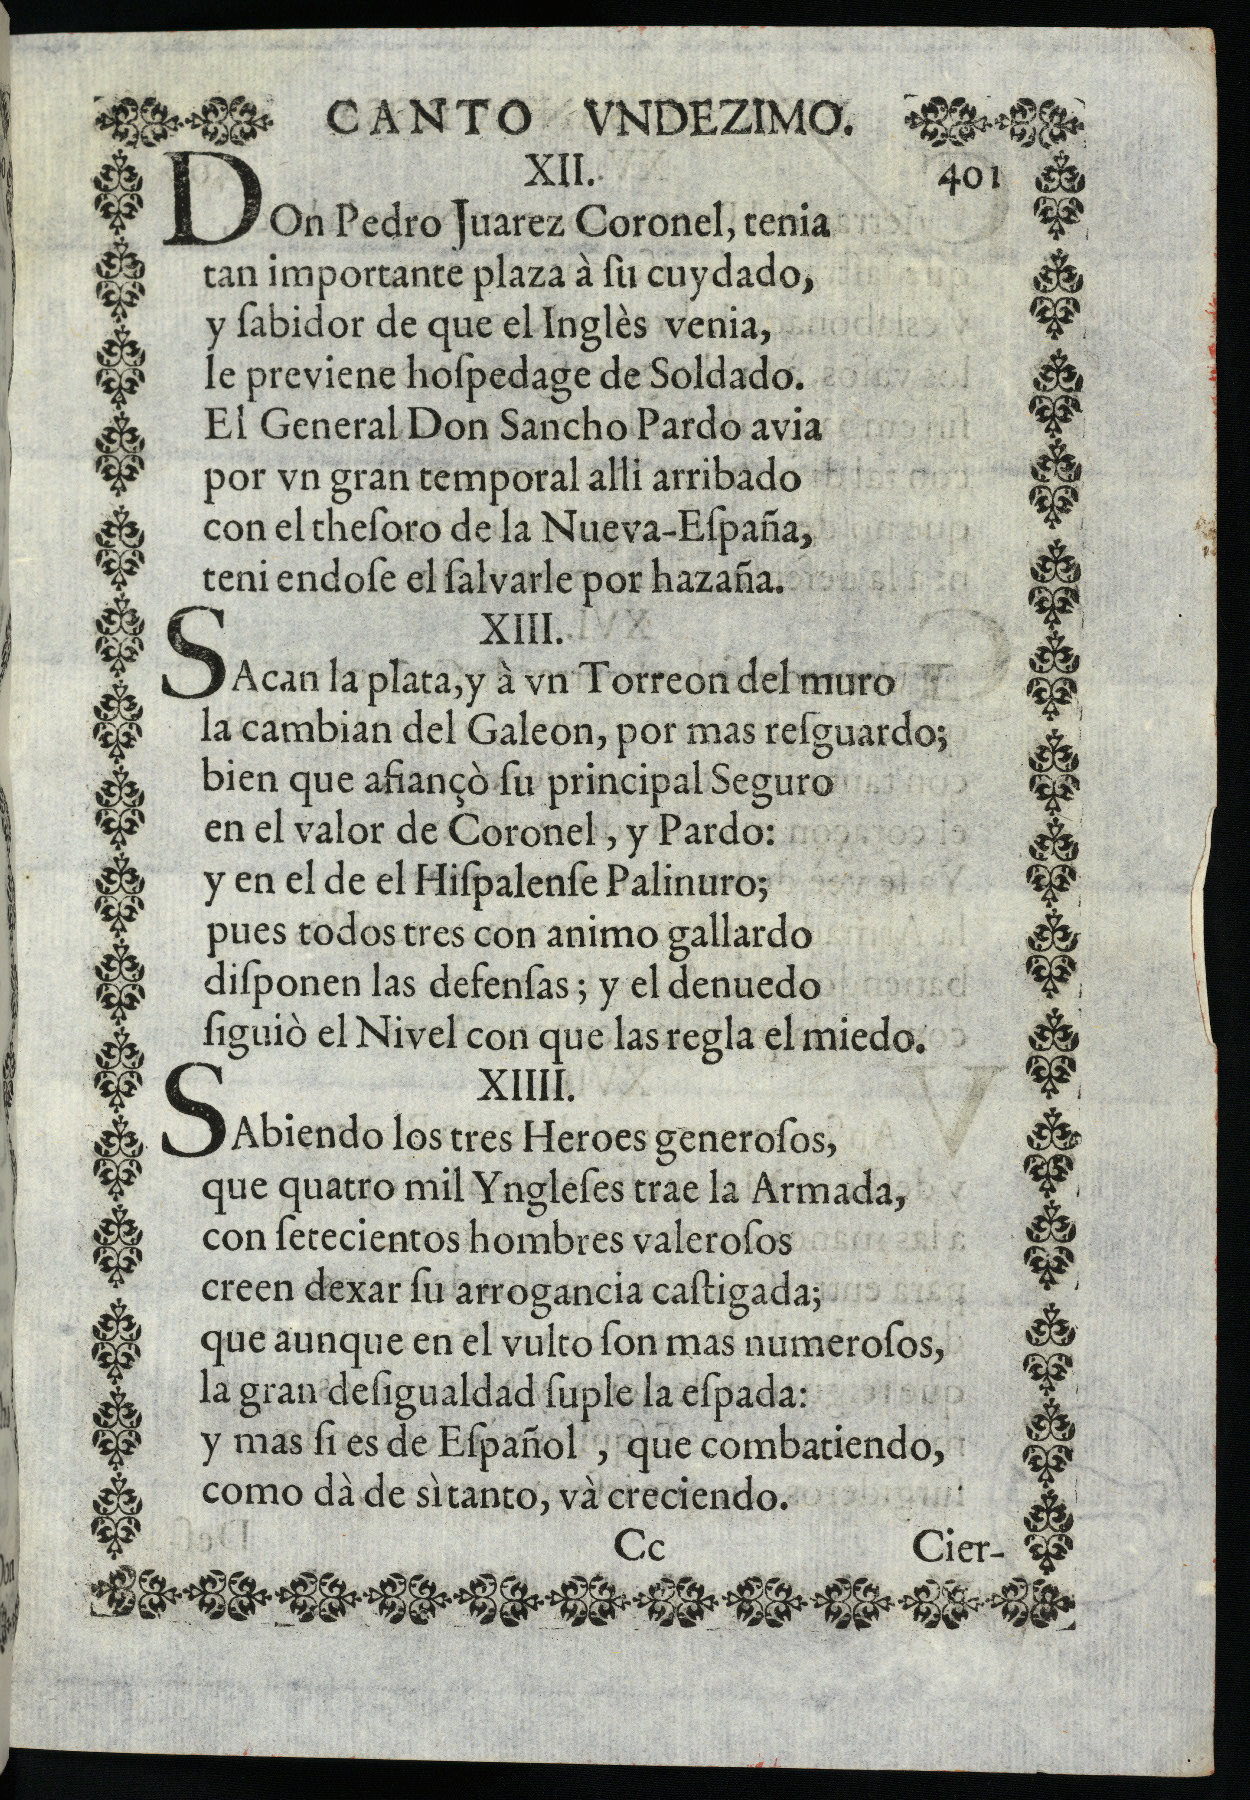 CANTO VNDEZIMO.
XII. 401
DOn Pedro Juarez Coronel, tenia
tan importante plaza à ſu cuydado,
y ſabidor de que el Inglès venia,
le previene hoſpedage de Soldado.
El General Don Sancho Pardo avia
por vn gran temporal alli arribado
con el theſoro de la Nueva-Eſpaña,
teni endoſe el ſalvarle por hazaña.
XIII.
SAcan la plata, y à vn Torreon del muro
la cambian del Galeon, por mas reſguardo;
bien que afiançò ſu principal Seguro
en el valor de Coronel, y Pardo:
y en el de el Hiſpalenſe Palinuro;
pues todos tres con animo gallardo
diſponen las defenſas; y el denuedo
ſiguiò el Nivel con que las regla el miedo.
XIIII.
SAbiendo los tres Heroes generoſos,
que quatro mil Yngleſes trae la Armada,
con ſetecientos hombres valeroſos
creen dexar ſu arrogancia caſtigada;
que aunque en el vulto ſon mas numeroſos,
la gran deſigualdad ſuple la eſpada:
y mas ſi es de Eſpañol , que combatiendo,
como dà de sì tanto, và creciendo.
Cc Cier-